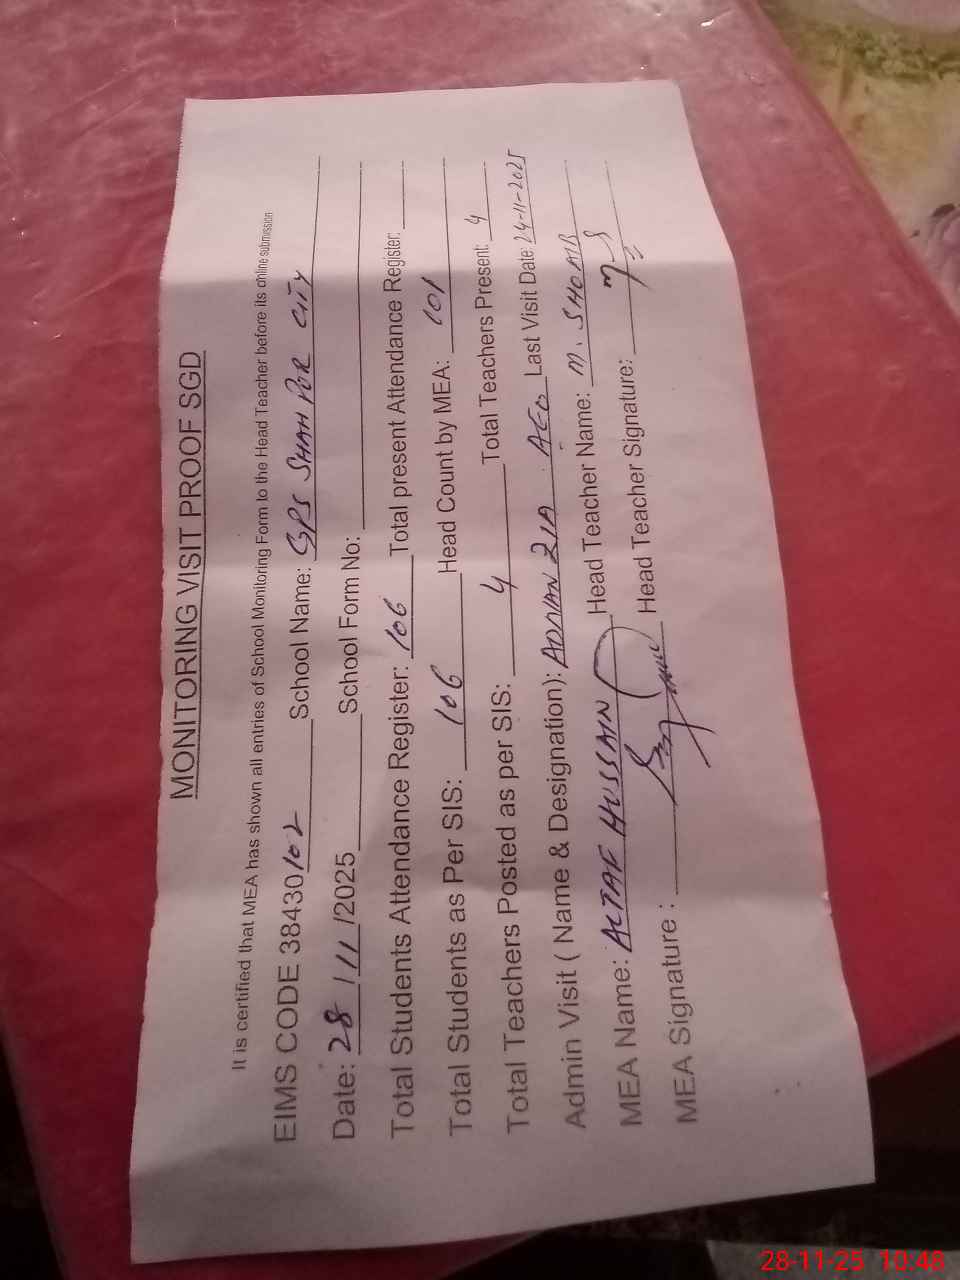 MONITORING VISIT PROOF SGD
It is certified that MEA has shown all entries of School Monitoring Form to the Head Teacher before its online submission
EIMS CODE 38430102 School Name: GPS SHAH PUR CITY
Date: 28/11/2025 School Form No:
Total Students Attendance Register: 106 Total present Attendance Register:
Total Students as Per SIS: 106 Head Count by MEA: 101
Total Teachers Posted as per SIS: 4 Total Teachers Present: 4
Admin Visit ( Name & Designation): ADNAN ZIA AEO Last Visit Date: 24-11-2025
MEA Name: ALTAF HUSSAIN Head Teacher Name: M. SHOAIB
MEA Signature : Head Teacher Signature:
28-11-25 10:48